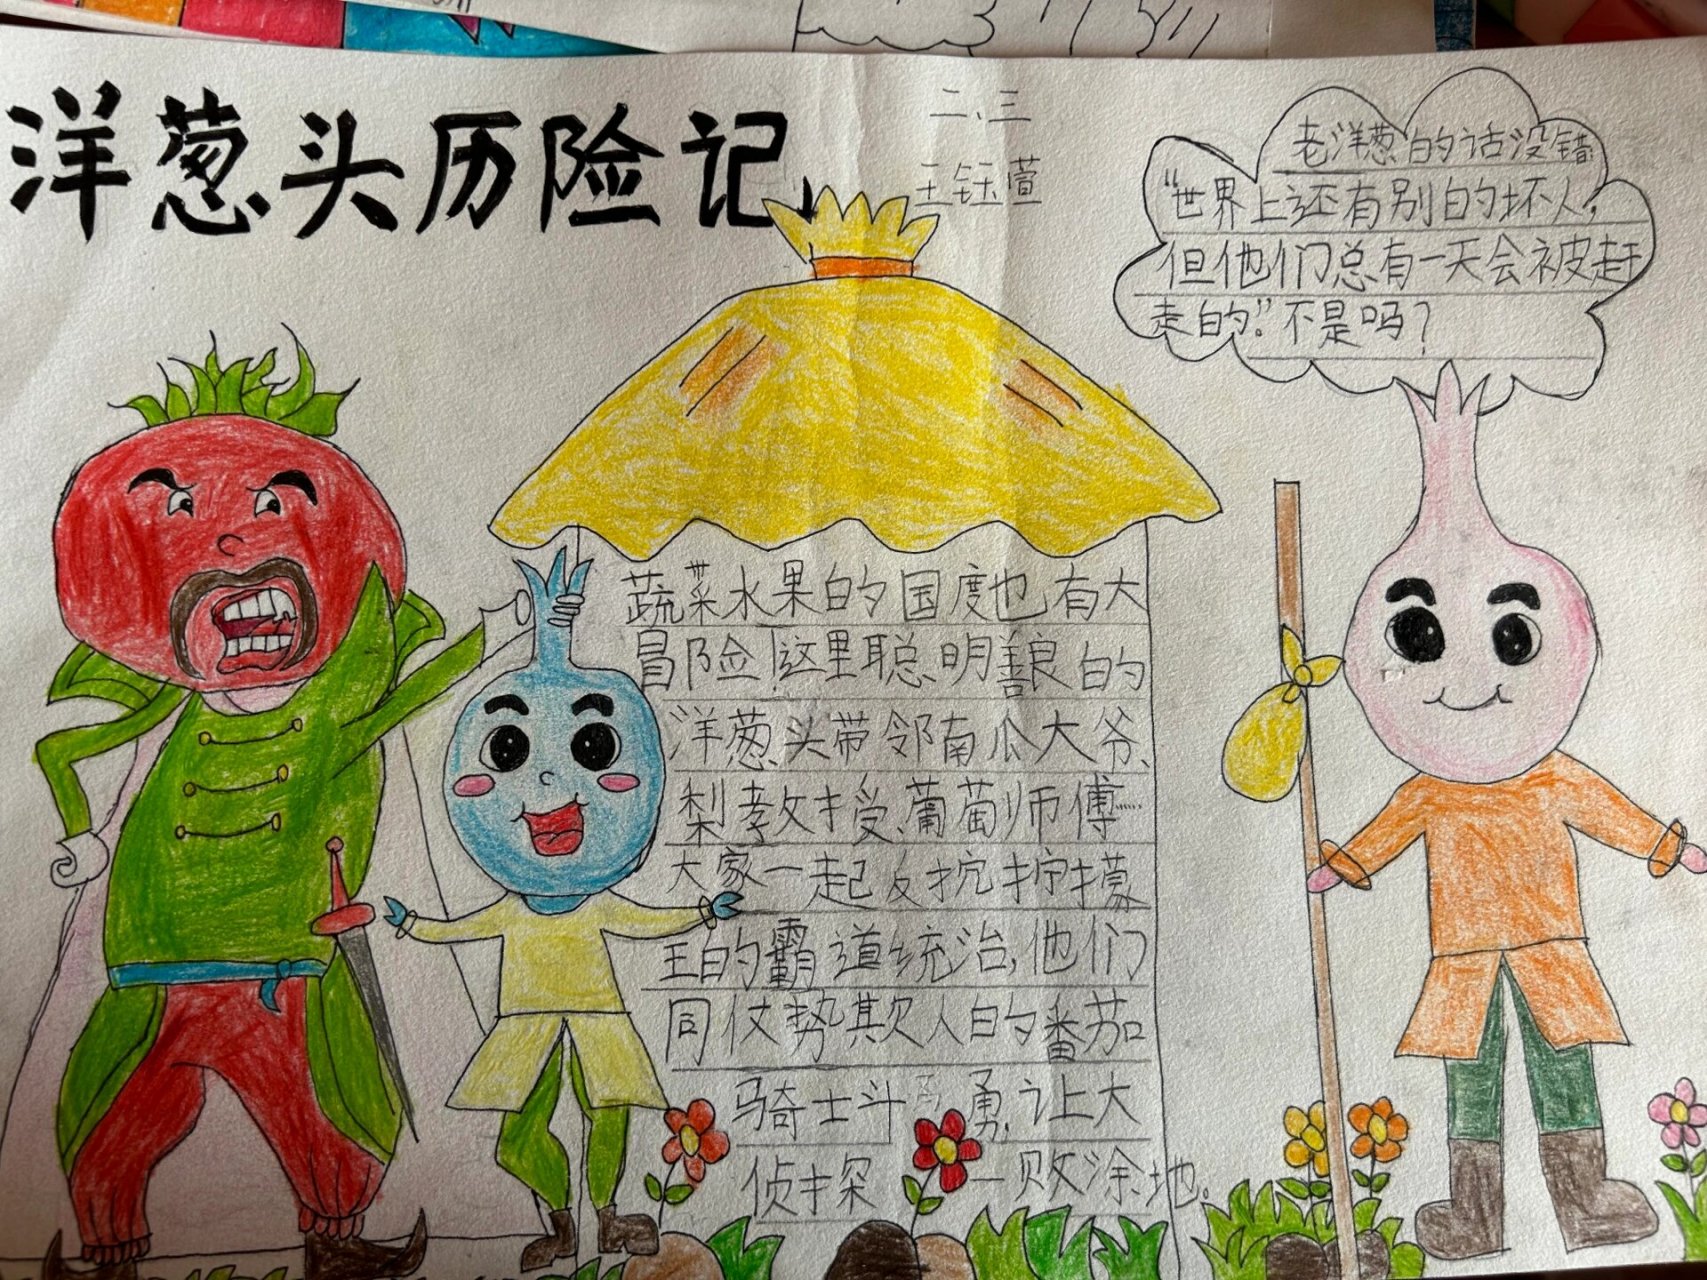 洋葱头历险记
二、三
王钰萱
老洋葱的话没错
“世界上还有别的坏人,
但他们总有一天会被赶
走的”.不是吗?
蔬菜水果的国度也有大
冒险!这里聪明善良的
洋葱头带邻南瓜大爷、
梨教授、葡萄师傅……
大家一起反抗柠檬
王的霸道统治,他们
同仗势欺人的番茄
骑士斗 勇,让大
侦探 一败涂地。